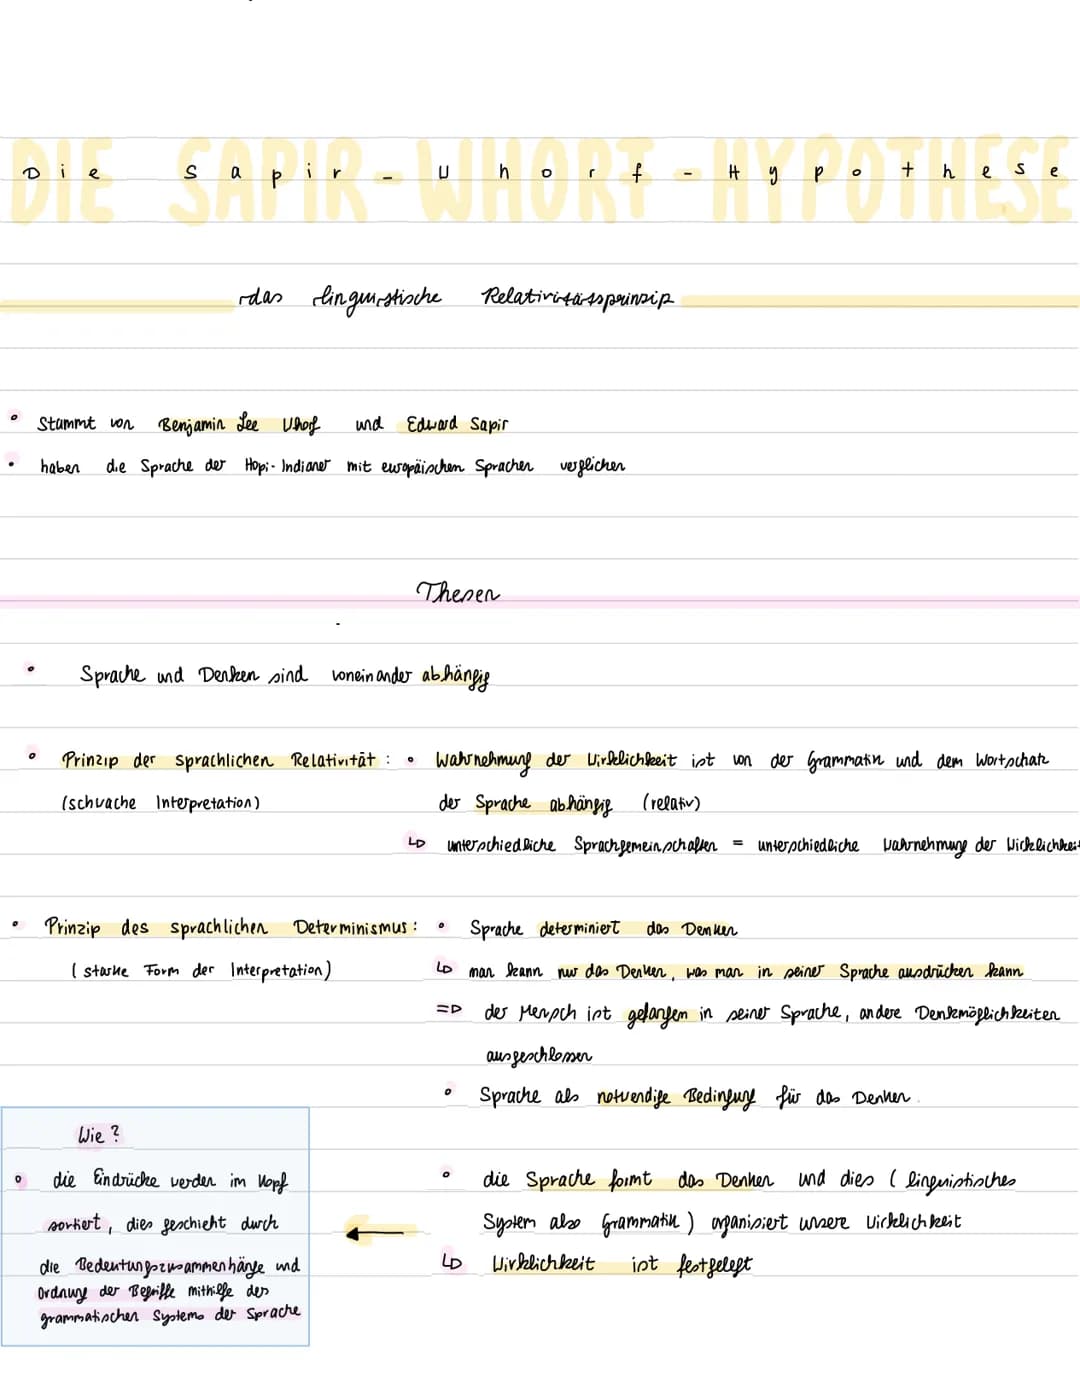 DIE SAPIR-WHORF-HYPOTHESE
Die Sapir-Whorf-Hypothese
das linguistische Relativitätsprinzip
• Stammt von Benjamin Lee Whof und Edward Sapir
• haben die Sprache der Hopi-Indianer mit europäischen Sprachen verglichen
Thesen
• Sprache und Denken sind voneinander abhängig
• Prinzip der sprachlichen Relativität : • Wahrnehmung der Wirklichkeit ist von der Grammatik und dem Wortschatz
(schwache Interpretation) der Sprache abhängig (relativ)
↳ unterschiedliche Sprachgemeinschaften = unterschiedliche Wahrnehmung der Wirklichkeit
• Prinzip des sprachlichen Determinismus : • Sprache determiniert das Denken
( starke Form der Interpretation) ↳ man kann nur das Denken, was man in seiner Sprache ausdrücken kann
=> der Mensch ist gefangen in seiner Sprache, andere Denkmöglichkeiten
ausgeschlossen
• Sprache als notwendige Bedingung für das Denken.
Wie ?
• die Eindrücke werden im Kopf
sortiert, dies geschieht durch
die Bedeutungszusammenhänge und
Ordnung der Begriffe mithilfe des
grammatischen Systems der Sprache
• die Sprache formt das Denken und dies ( linguistisches
System also Grammatik ) organisiert unsere Wirklichkeit
↳ Wirklichkeit ist festgelegt